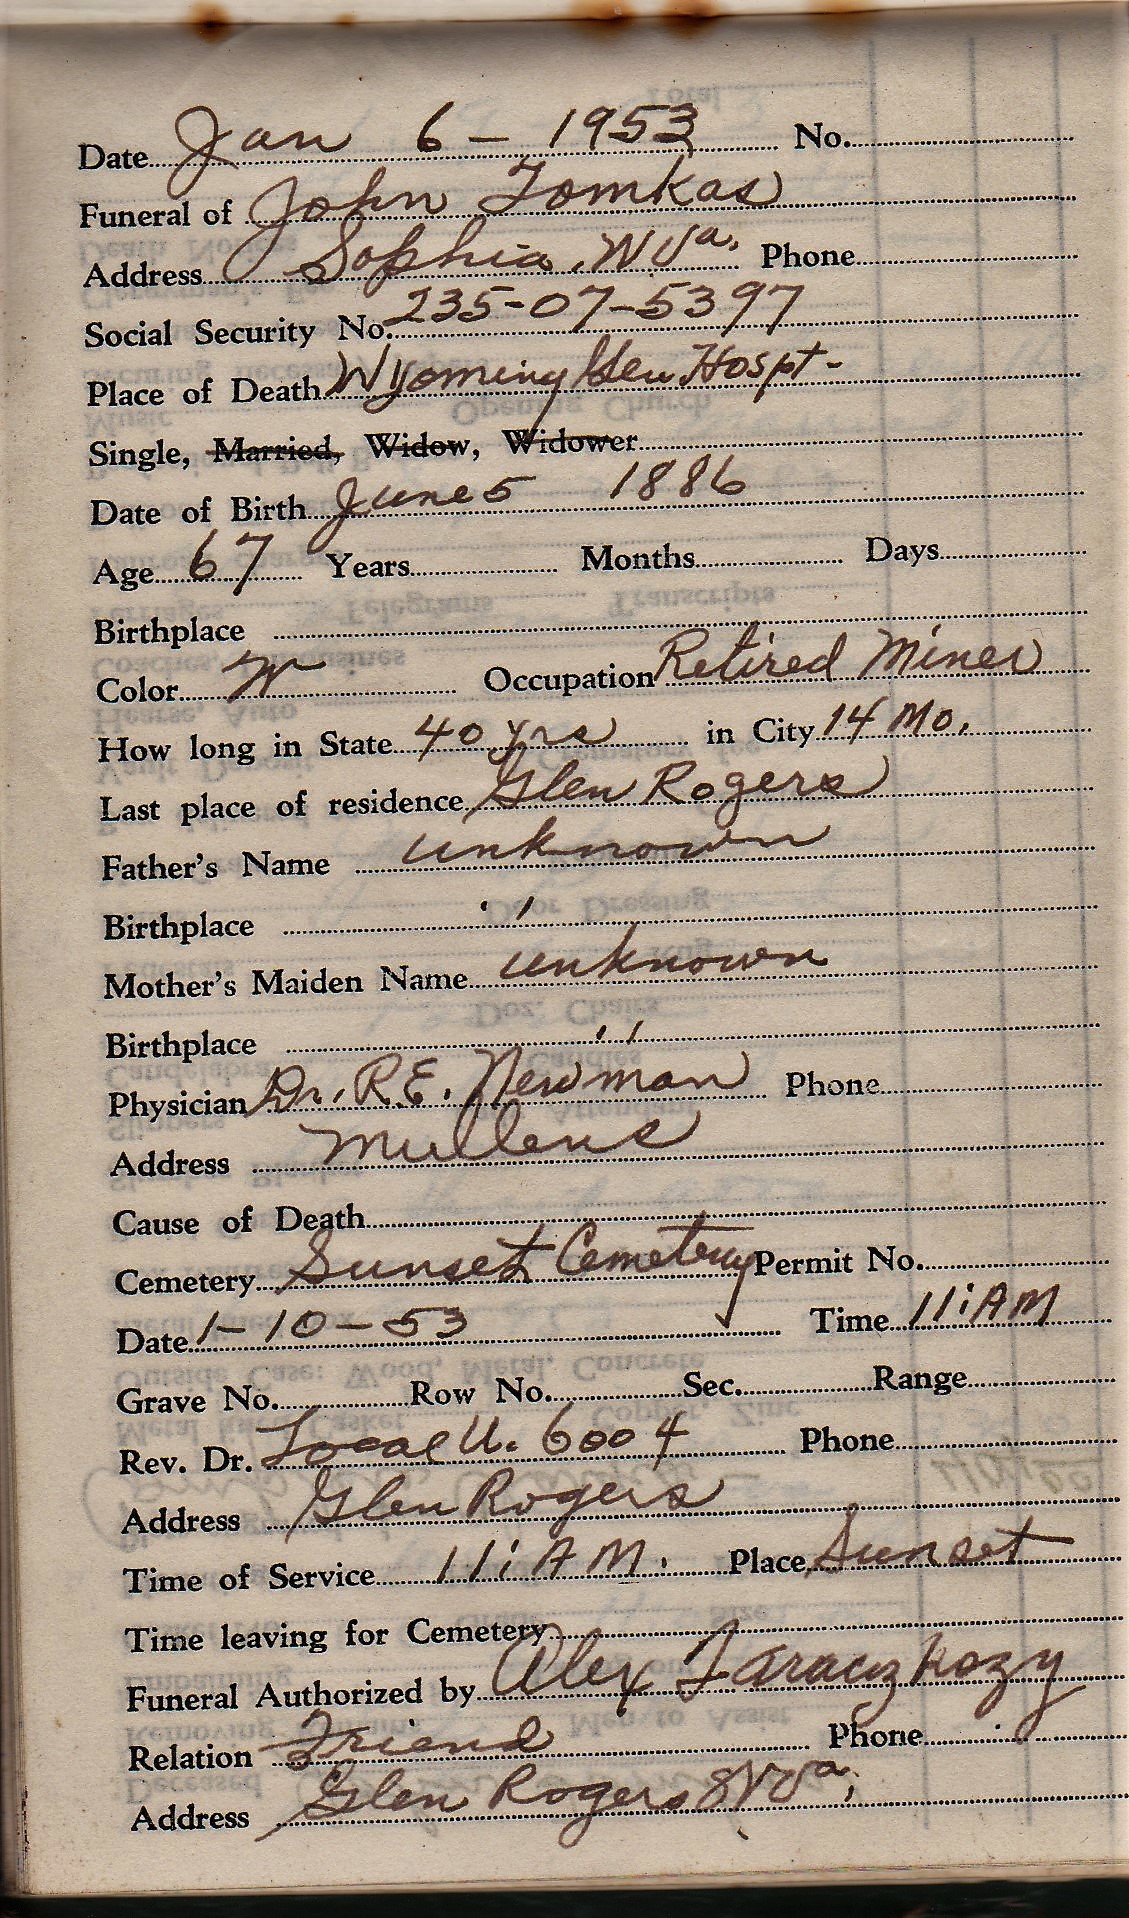 Date Jan 6 - 1953 No.
Funeral of John Tomkas
Address Sophia, W Va. Phone
Social Security No. 235-07-5397
Place of Death Wyoming Gen Hospt-
Single, Married, Widow, Widower
Date of Birth June 5 1886
Age 67 Years Months Days
Birthplace
Color W Occupation Retired Miner
How long in State 40 yrs in City 14 Mo.
Last place of residence Glen Rogers
Father's Name unknown
Birthplace ''
Mother's Maiden Name unknown
Birthplace ''
Physician Dr. R.E. Newman Phone
Address Mullens
Cause of Death
Cemetery Sunset Cemetery Permit No.
Date 1-10-53 Time 11:AM
Grave No. Row No. Sec. Range
Rev. Dr. Local U. 6004 Phone
Address Glen Rogers
Time of Service 11:AM. Place Sunset
Time leaving for Cemetery
Funeral Authorized by Alex Taraczkozy
Relation Friend Phone
Address Glen Rogers W Va.